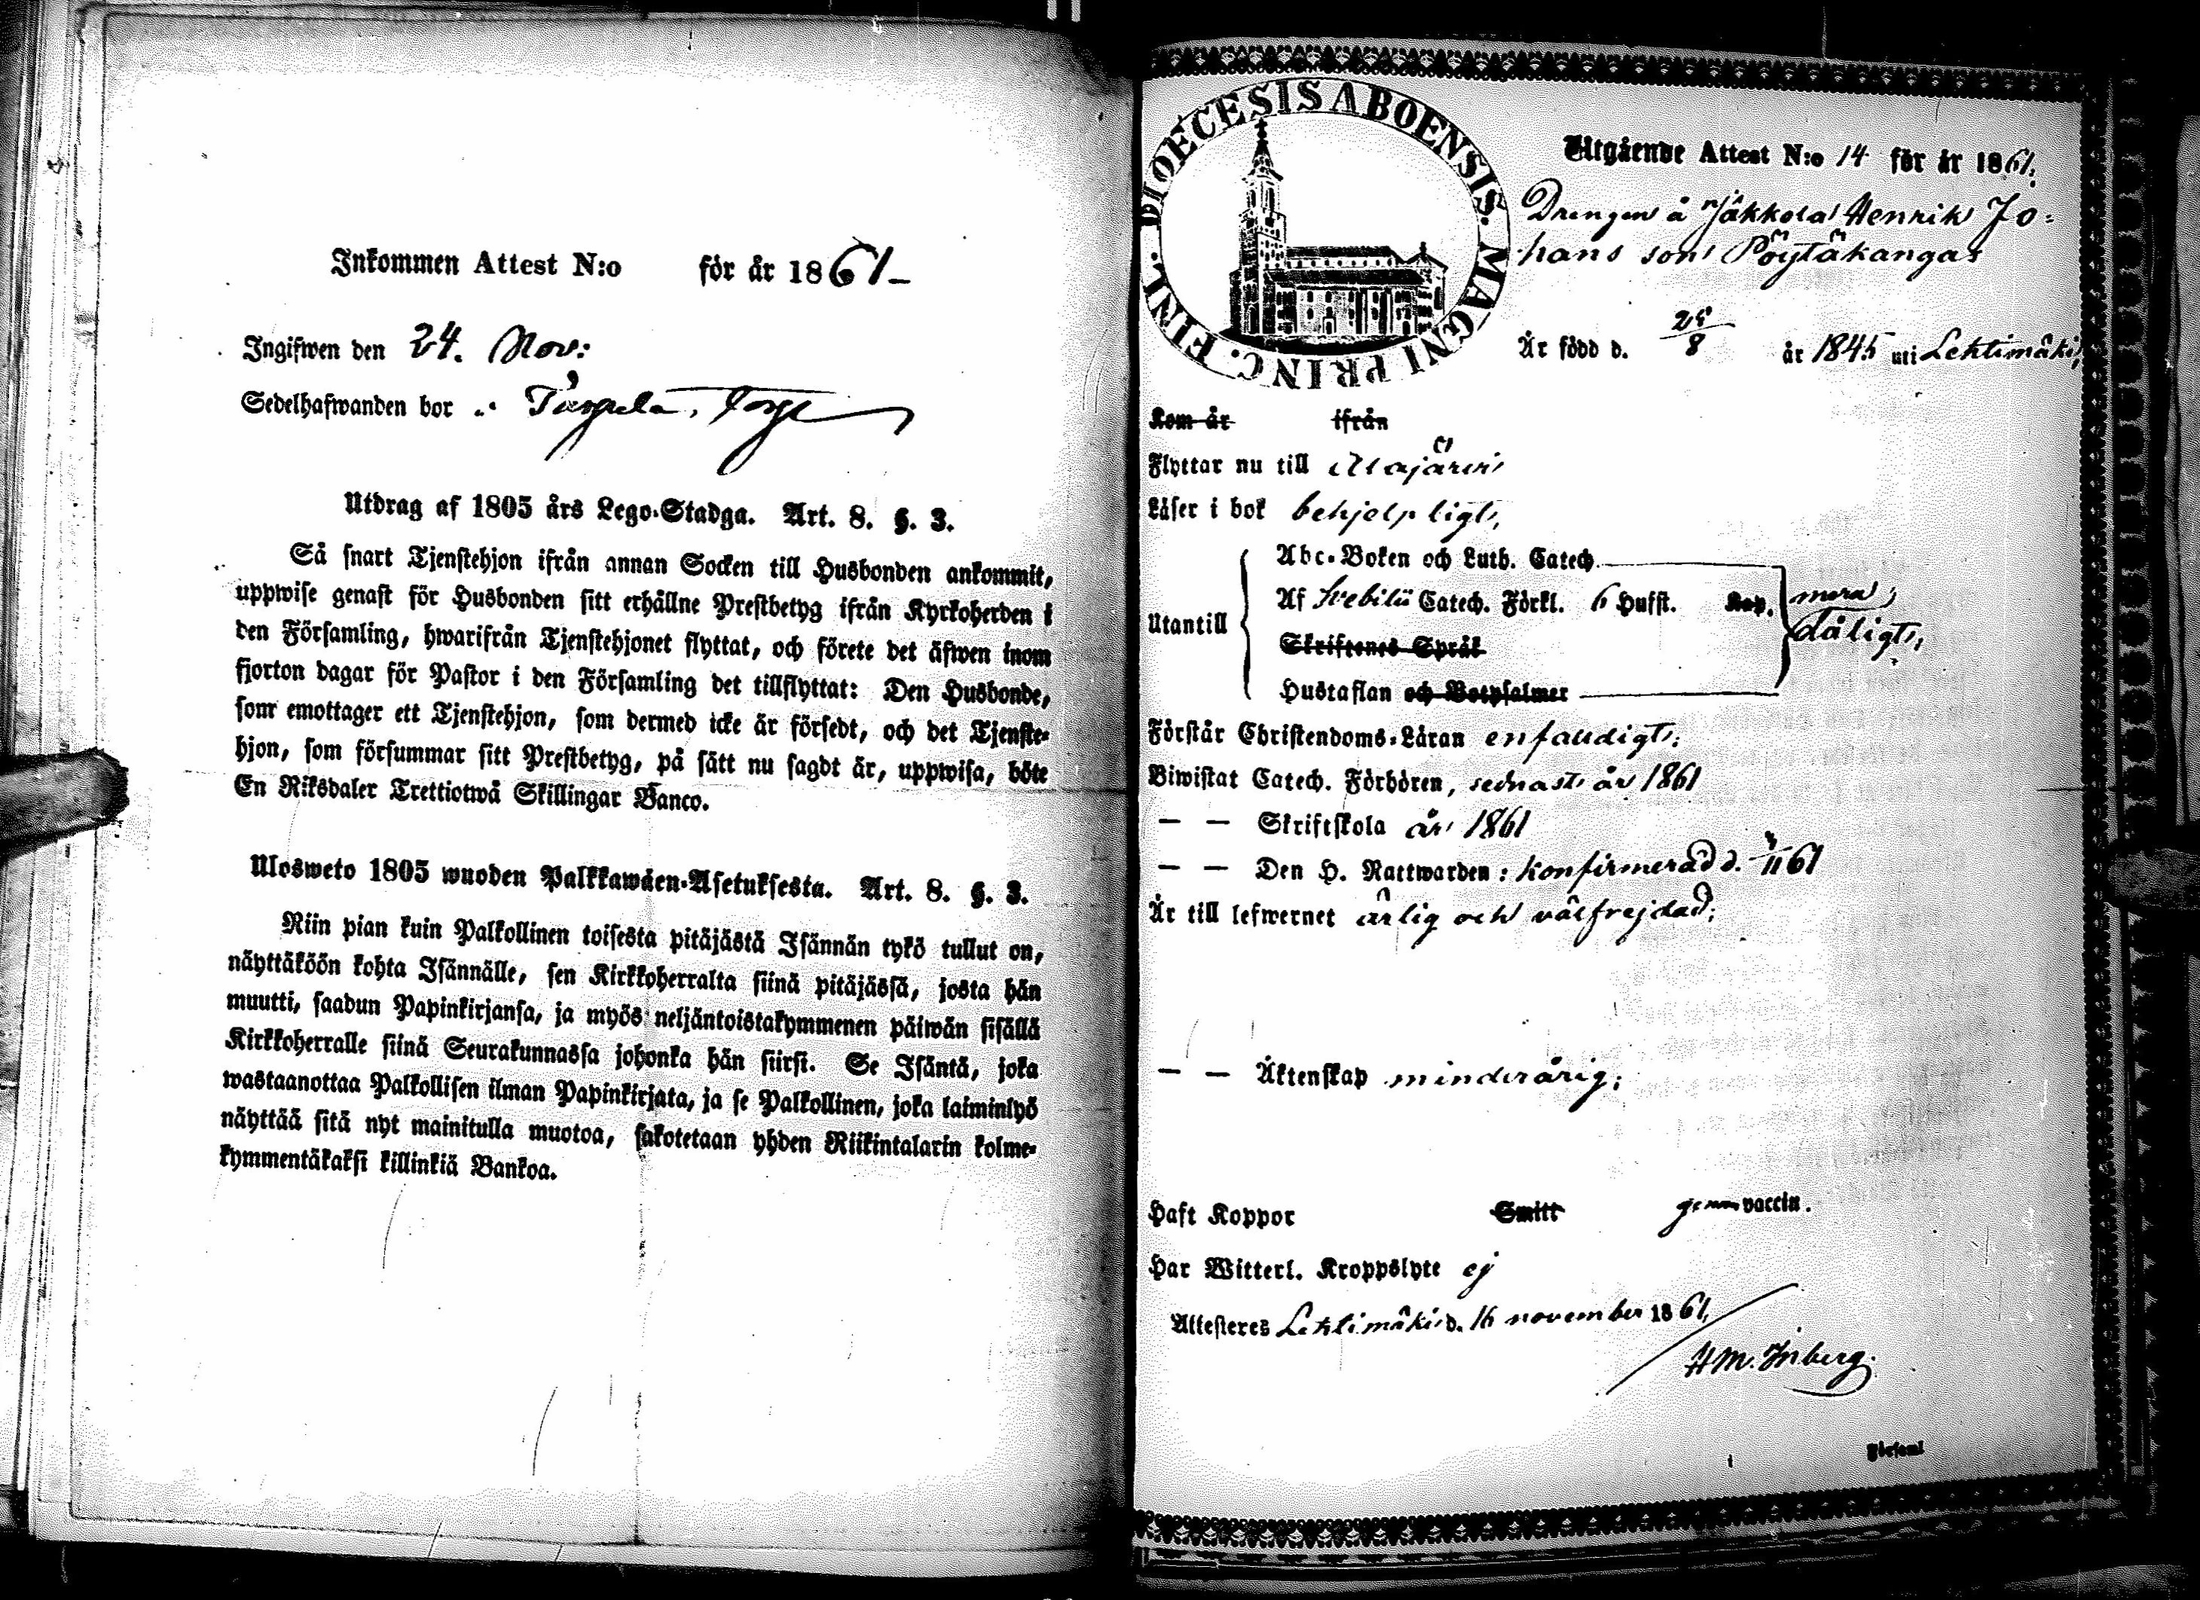 Inkommen Attest N:o för år 1861
Ingifwen den 24. Nov:
Sedelhafwanden bor
Utdrag af 1805 års Lego-Stadga. Art. 8. §. 3.
Så snart Tjenstehjon ifrån annan Socken till Husbonden ankommit,
uppwise genast för Husbonden sitt erhållne Prestbetyg ifrån Kyrkoherden i
den Församling, hwarifrån Tjenstehjonet flyttat, och förete det äfwen inom
fjorton dagar för Pastor i den Församling det tillflyttat: Den Husbonde,
som emottager ett Tjenstehjon, som dermed icke är försedt, och det Tjenste-
hjon, som försummar sitt Prestbetyg, på sätt nu sagdt är, uppwisa, böte
En Riksdaler Trettiotwå Skillingar Banco.
Ulosweto 1805 wuoden Palkkawäen-Asetuksesta. Art. 8. §. 3.
Niin pian kuin Palkollinen toisesta pitäjästä Isännän tykö tullut on,
näyttäköön kohta Isännälle, sen Kirkkoherralta siinä pitäjässä, josta hän
muutti, saadun Papinkirjansa, ja myös neljäntoistakymmenen päiwän sisällä
Kirkkoherralle siinä Seurakunnassa johonka hän siirsi. Se Isäntä, joka
wastaanottaa Palkollisen ilman Papinkirjata, ja se Palkollinen, joka laiminlyö
näyttää sitä nyt mainitulla muotoa, sakotetaan yhden Riikintalarin kolme-
kymmentäkaksi killinkiä Bankoa.
DIOECESIS ABOENSIS. MAGNI PRINC. FINL.
Utgående Attest N:o 14 för år 1861.
Drengen å Jäkkola Henrik Jo-
hans son Pöytäkangas
Är född d. 25/8 år 1845 uti Lehtimäki,
Kom år ifrån
Flyttar nu till Alajärvi
Läser i bok behjelpligt,
Abc-Boken och Luth. Catech.
Utantill Af Svebilii Catech. Förkl. 6 Hufst. Kap. mera
dåligt,
Skriftenes Språk
Hustaflan och Botpsalmer
Förstår Christendoms-Läran enfaldigt;
Biwistat Catech. Förhören, sednast år 1861
— — Skriftskola år 1861
— — Den H. Nattwarden: konfirmerad d. /11 61
Är till lefwernet ärlig och välfrejdad;
— — Äktenskap minderårig;
Haft Koppor Smitt genom vaccin.
Har Witterl. Kroppslyte ej
Attesteres Lehtimäki d. 16 november 1861,
HM. Inberg.
Församl